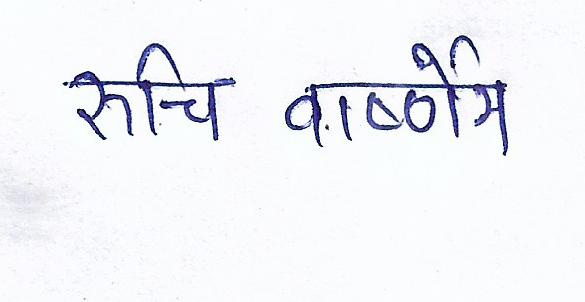 रुचि वार्ष्णेय